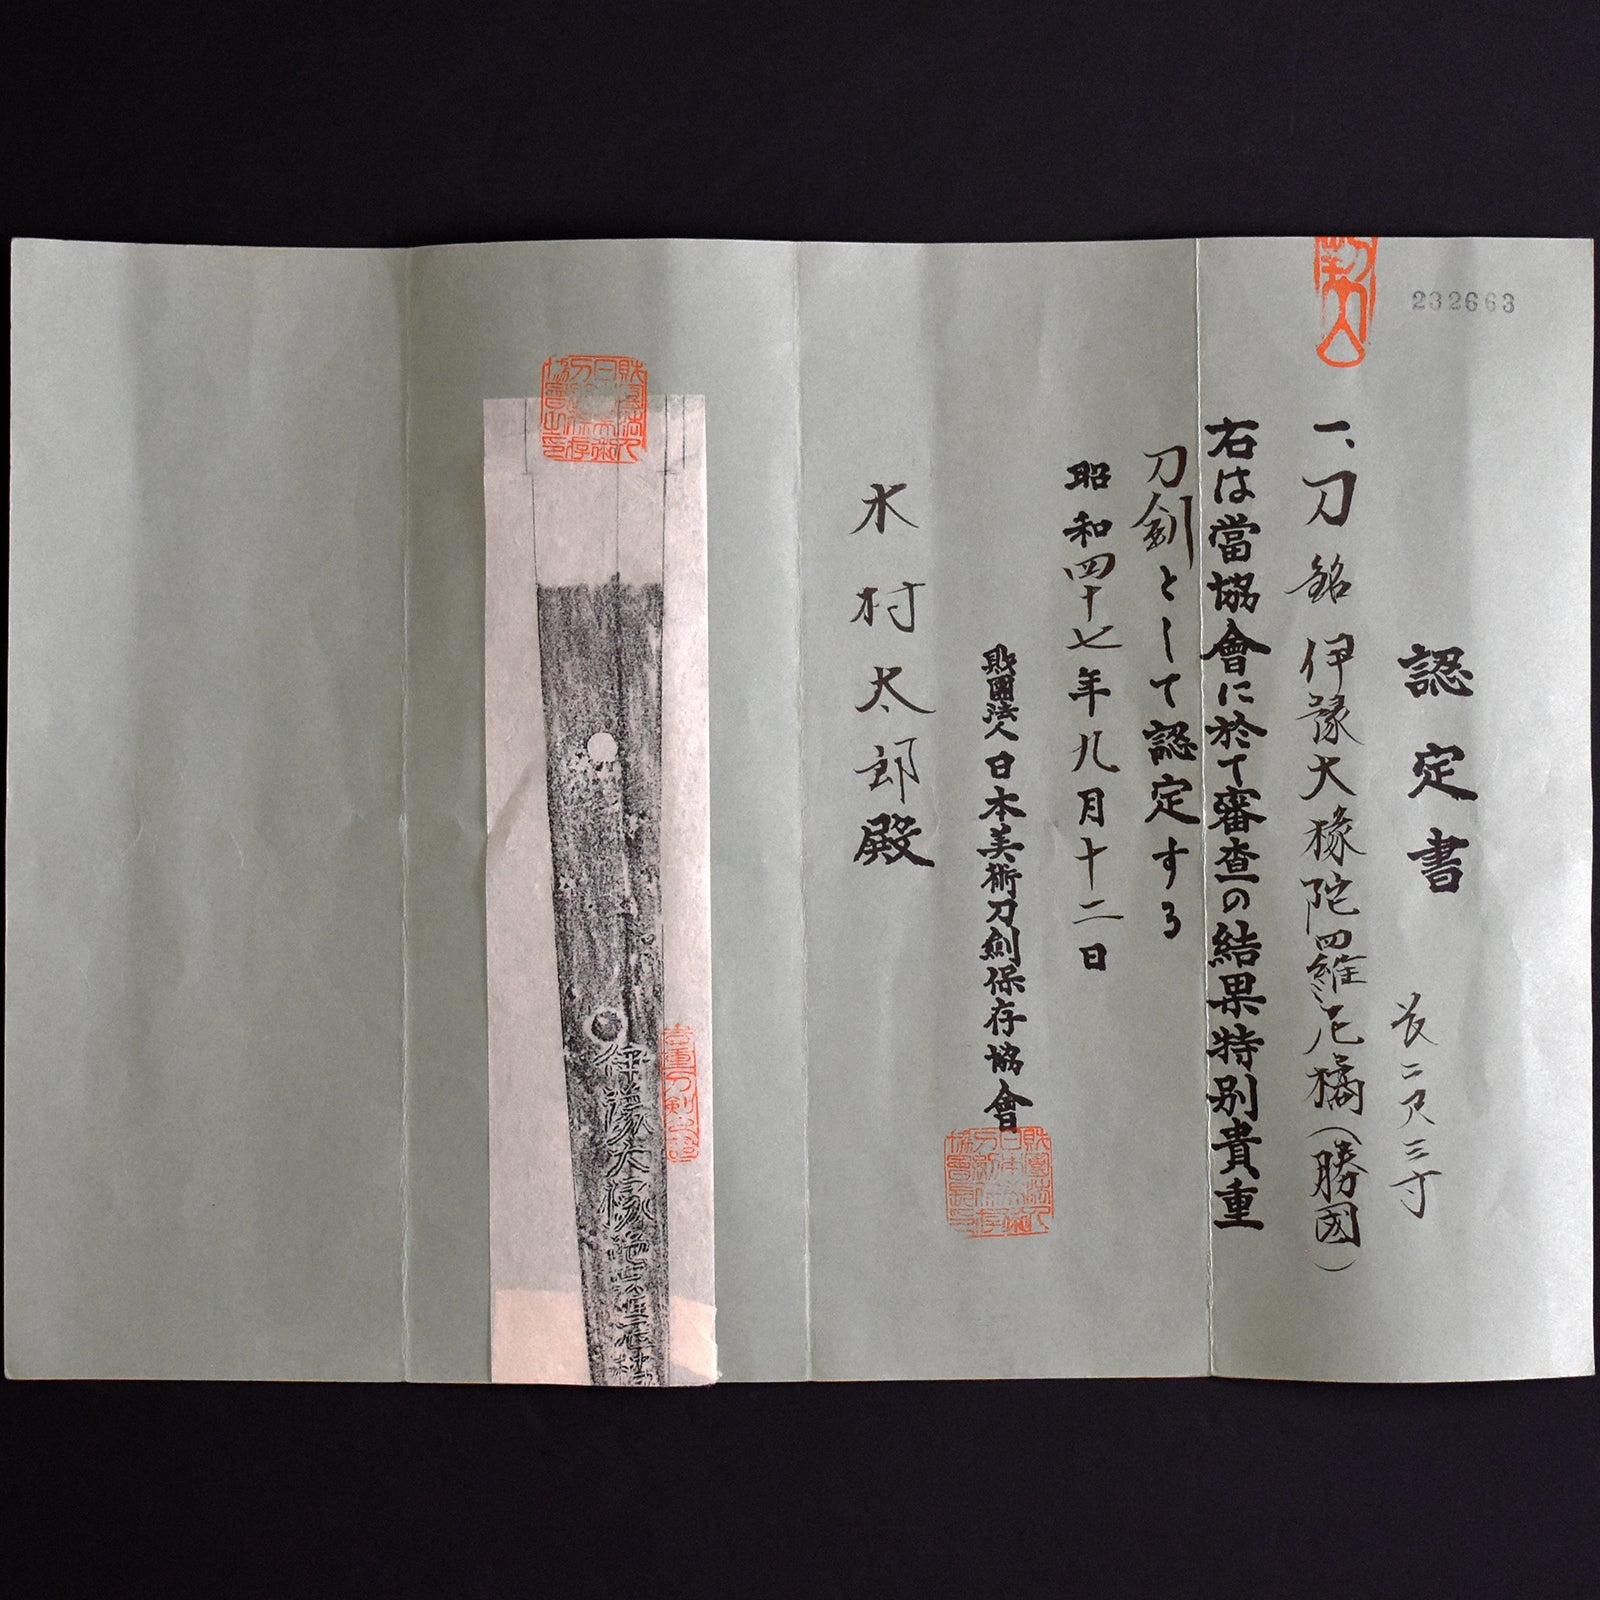 232663
認定書
長二尺三寸
一、刀 銘 伊豫大掾陀羅尼橘(勝國)
右は當協會に於て審査の結果特別貴重
刀劍として認定する
昭和四十七年九月十二日
財團法人日本美術刀劍保存協會
水村太郎殿
伊豫大掾